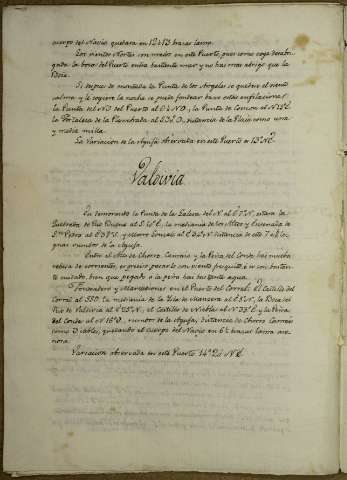 cuerpo del Navio quedara en 12 á 13 brazas lama.
Los vientos Nortes son malos en este Puerto, pues como coge desabri-
gada la boca del Puerto entra bastante mar y no hay mas abrigo que la
Poza.
Si despues de montada la Punta de los Angeles se quedare el viento
calma y le cogiere la noche se puede fondear bajo estas enfilaciones:
la Punta del N. del Puerto al
la Fortaleza de la distancia de la Playa como una
y media milla.
La Variacion de la Aguja observada en este Puerto es 13° NE.
Valdivia.
En demorando la Punta de la Galera del N. al
Quebrada de la medianía de los Altos y Ensenada de
Sn. Pedro al y Morro Gonzalo al distancia de este 7 á 8 le-
guas rumbos de la Aguja.
Entre el Alto de Chorro Camaró y la Peña del Conde hay mucha
rebesa de corriente, es preciso pasarlo con viento fresquito ó con bastan-
te cuidado, bien que pegado á la peña hay bastante agua.
Fondeadero y Marcaciones en el Puerto del Corral: El Castillo del
Corral al SSO. La medianía de la Isla de Mancera al la Boca del
Rio de Valdivia al el Castillo de Niebla al y la Peña
del Conde al rumbos de la Aguja, distancia de Chorro Camaró
como 2 cables, quedando el cuerpo del Navio en 6½ brazas lama are-
nosa.
Variacion observada en este Puerto 14° NE.